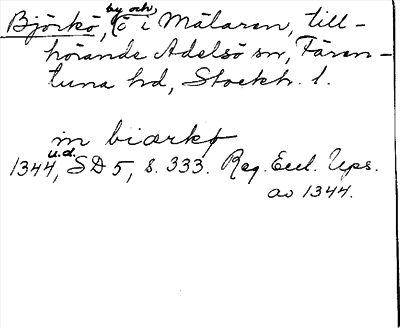 Björkö, by och ö i Mälaren, till-
hörande Adelsö sn, Fären-
tuna hd, Stockh. l.
in biærkø
1344 u.d., SD 5, s. 333. Reg. Eccl. Ups.
av 1344.